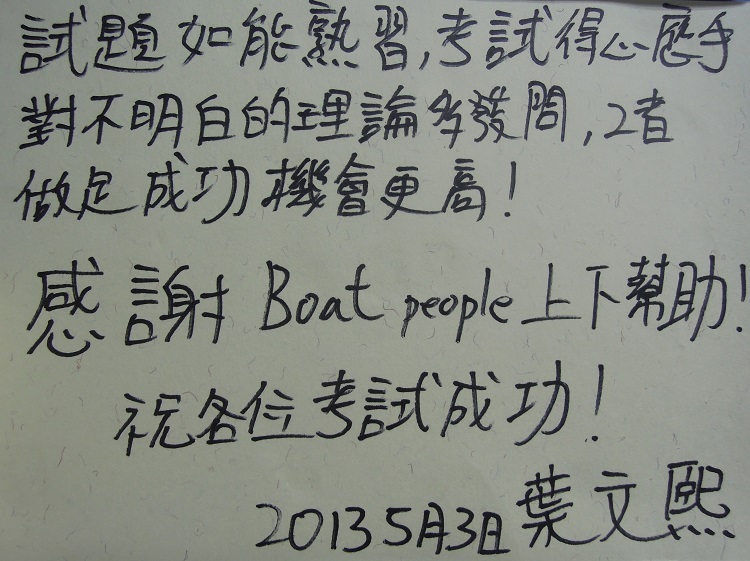 試題如能熟習,考試得心應手
對不明白的理論多發問,2者
做足成功機會更高!
感謝 Boat people 上下幫助!
祝各位考試成功!
2013 5月3日 葉文熙